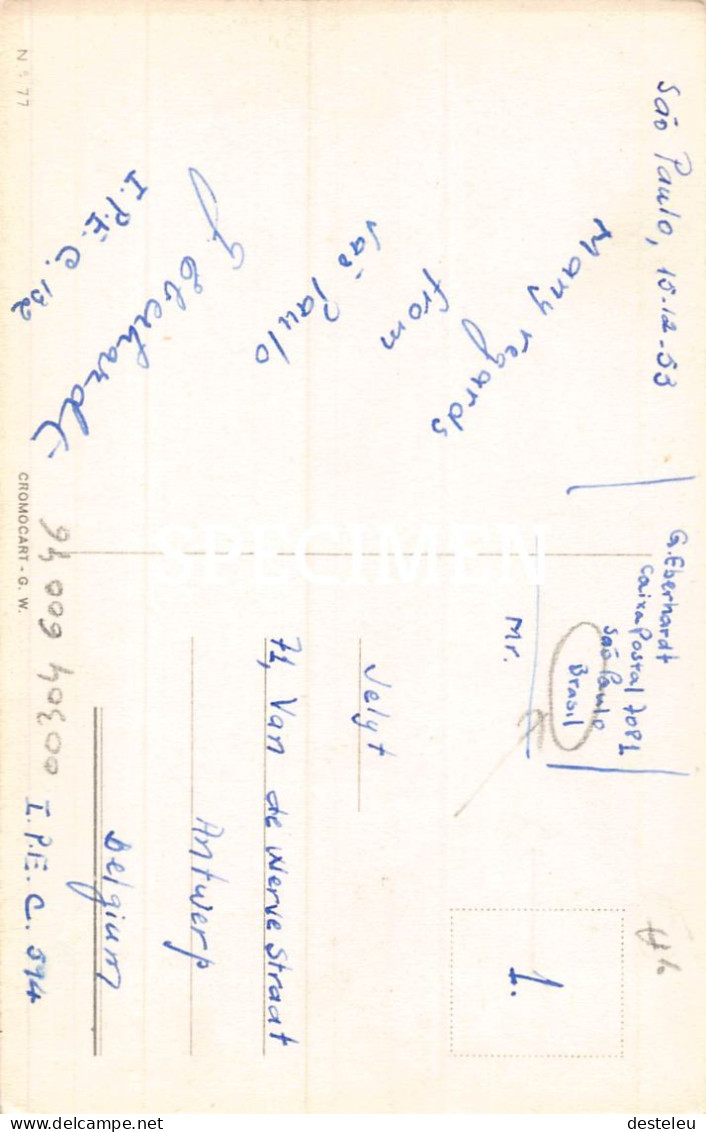 São Paulo, 15.12-53
Many regards
from
São Paulo
G. Eberhardt
I.P.E.C. 132
N.º 77
CROMOCART - G. W.
G. Eberhardt
Caixa Postal 7081
São Paulo
Brasil
Mr.
Velyt
71, Van de Nerve Straat
Antwerp
Belgium
I.P.E.C. 594
1.
SPECIMEN
delcampe.net
desteleu